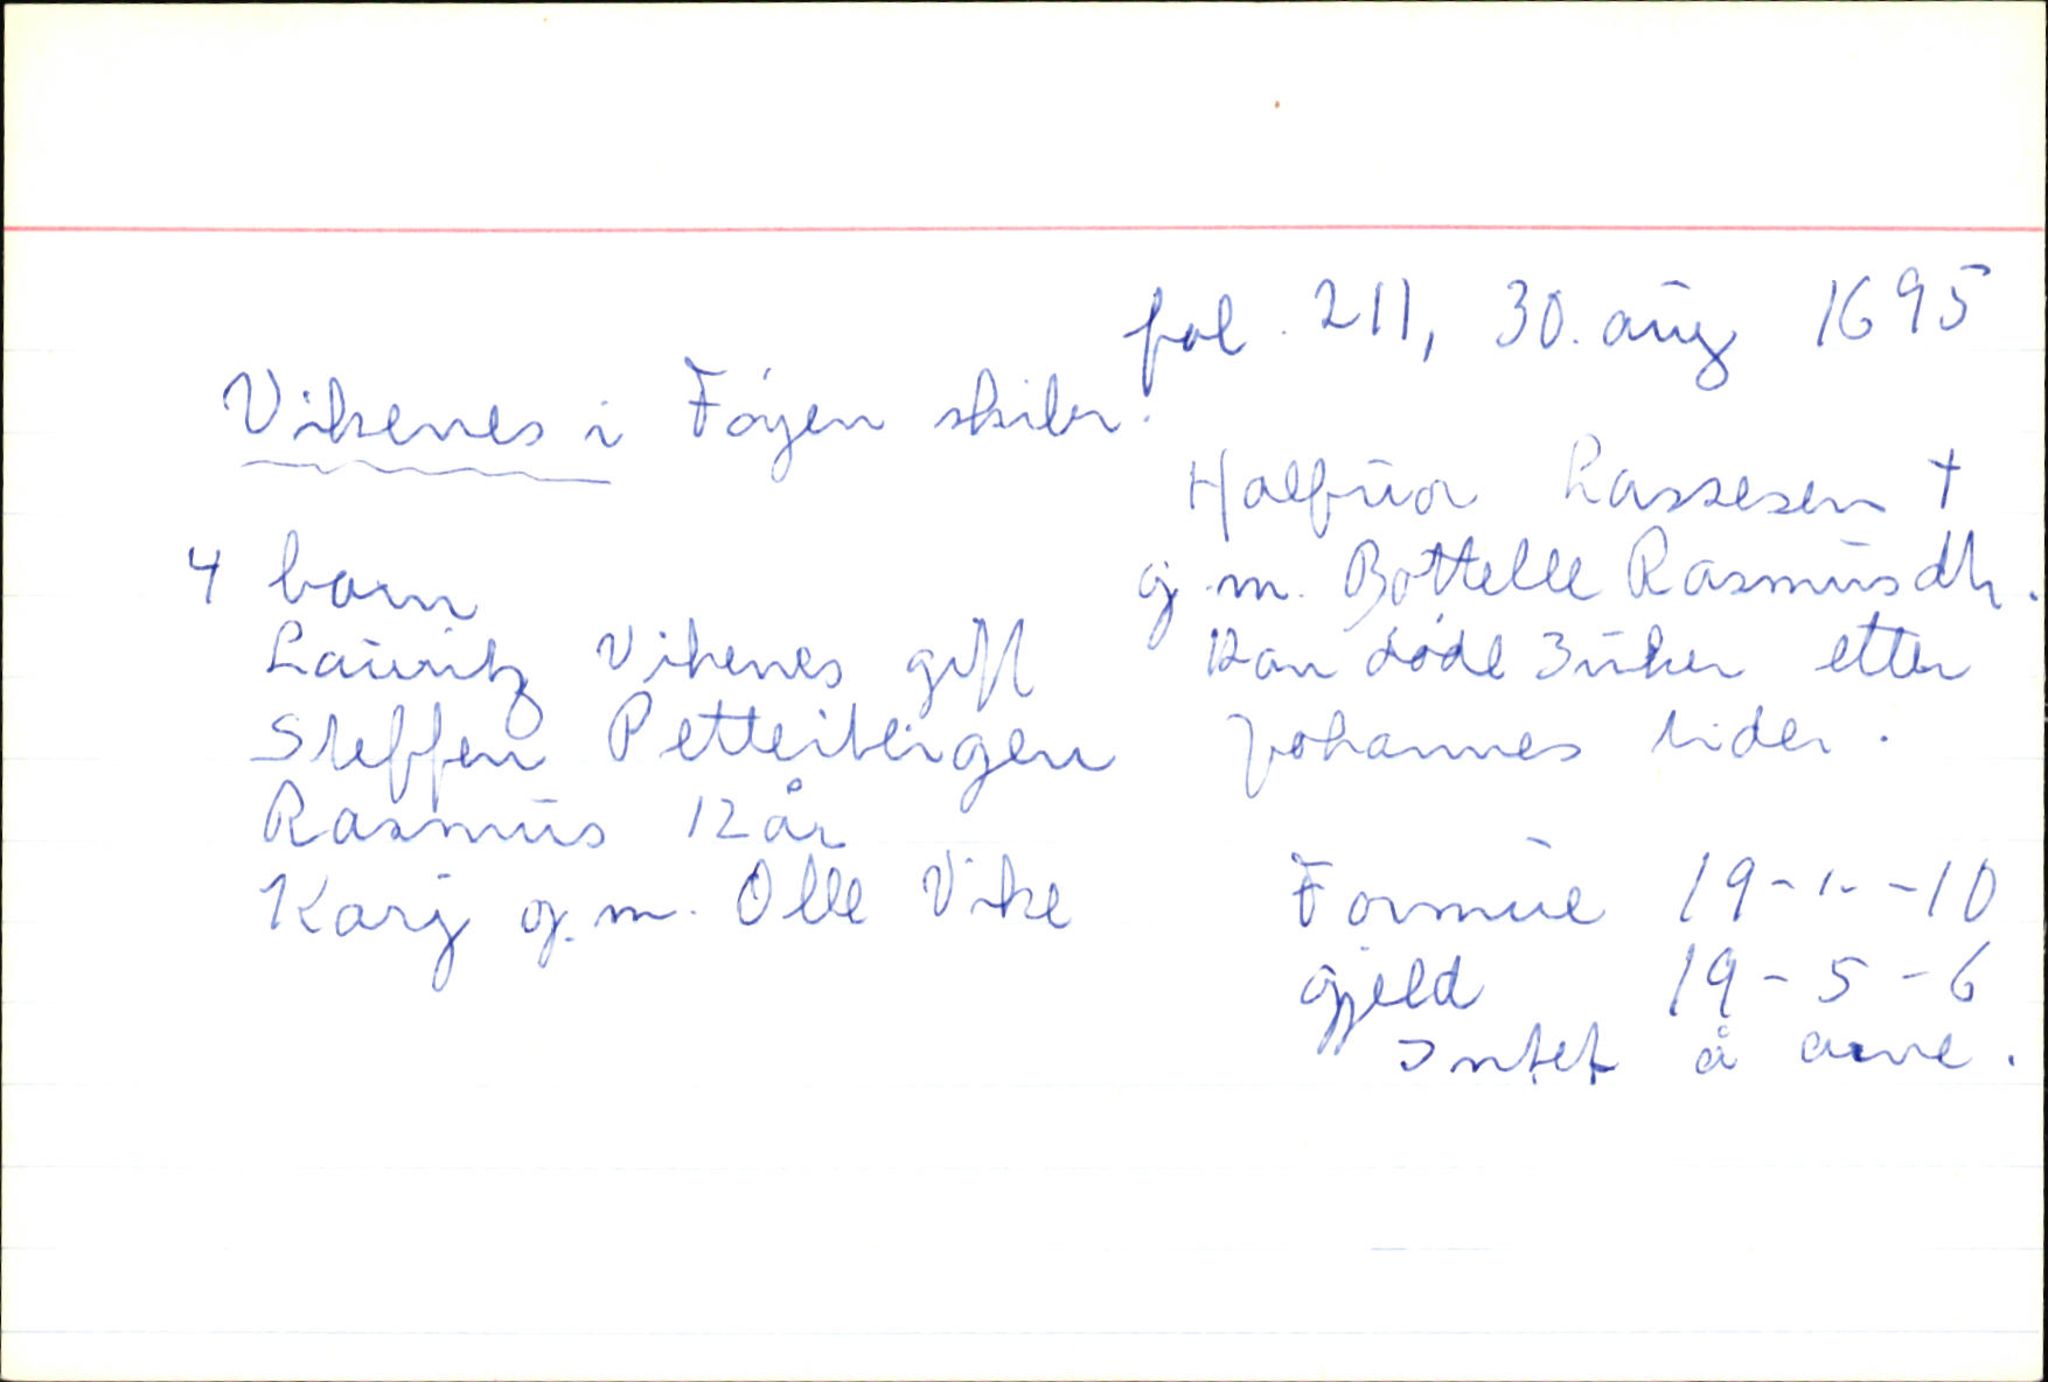 fol. 211, 30. aug 1695
Vikenes i Føyen skibr.
Halfuor Lassesen †
g.m. Bottelle Rasmusdtr.
Han døde 3 uker etter
Johannes tider.
4 barn
Lauritz Vikenes gift
Steffen Petterteigen
Rasmus 12 år
Karj g.m. Olle Vike
Formue 19-"--10
gjeld 19-5-6
Intet å arve.